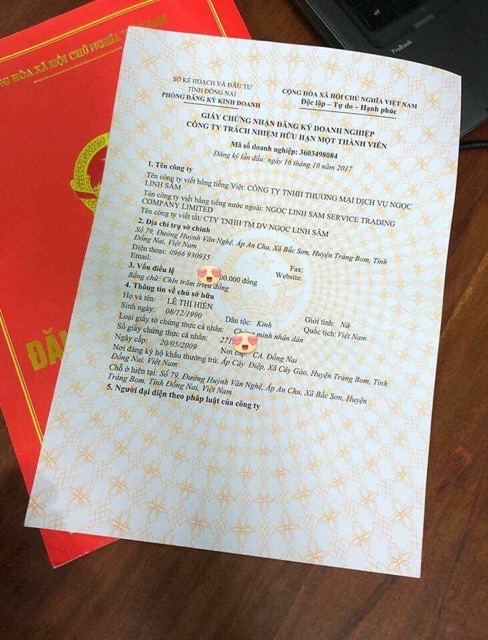 ProBook
HÒA XÃ HỘI CHỦ NGHĨA
SỞ KẾ HOẠCH VÀ ĐẦU TƯ
TỈNH ĐỒNG NAI
PHÒNG ĐĂNG KÝ KINH DOANH
CỘNG HÒA XÃ HỘI CHỦ NGHĨA VIỆT NAM
Độc lập - Tự do - Hạnh phúc
GIẤY CHỨNG NHẬN ĐĂNG KÝ DOANH NGHIỆP
CÔNG TY TRÁCH NHIỆM HỮU HẠN MỘT THÀNH VIÊN
Mã số doanh nghiệp: 3603498084
Đăng ký lần đầu: ngày 16 tháng 10 năm 2017
1. Tên công ty
Tên công ty viết bằng tiếng Việt: CÔNG TY TNHH THƯƠNG MẠI DỊCH VỤ NGỌC
LINH SÂM
Tên công ty viết bằng tiếng nước ngoài: NGOC LINH SAM SERVICE TRADING
COMPANY LIMITED
Tên công ty viết tắt: CTY TNHH TM DV NGỌC LINH SÂM
2. Địa chỉ trụ sở chính
Số 79, Đường Huỳnh Văn Nghệ, Ấp An Chu, Xã Bắc Sơn, Huyện Trảng Bom, Tỉnh
Đồng Nai, Việt Nam
Điện thoại: 0966 930935 Fax:
Email: Website:
3. Vốn điều lệ 00.000 đồng
Bằng chữ: Chín trăm triệu đồng
4. Thông tin về chủ sở hữu
Họ và tên: LÊ THỊ HIỀN Giới tính: Nữ
Sinh ngày: 08/12/1990 Dân tộc: Kinh Quốc tịch: Việt Nam
Loại giấy tờ chứng thực cá nhân: Chứng minh nhân dân
Số giấy chứng thực cá nhân: 271
Ngày cấp: 20/05/2009 Nơi cấp: CA. Đồng Nai
Nơi đăng ký hộ khẩu thường trú: Ấp Cây Điệp, Xã Cây Gáo, Huyện Trảng Bom, Tỉnh
Đồng Nai, Việt Nam
Chỗ ở hiện tại: Số 79, Đường Huỳnh Văn Nghệ, Ấp An Chu, Xã Bắc Sơn, Huyện
Trảng Bom, Tỉnh Đồng Nai, Việt Nam
5. Người đại diện theo pháp luật của công ty